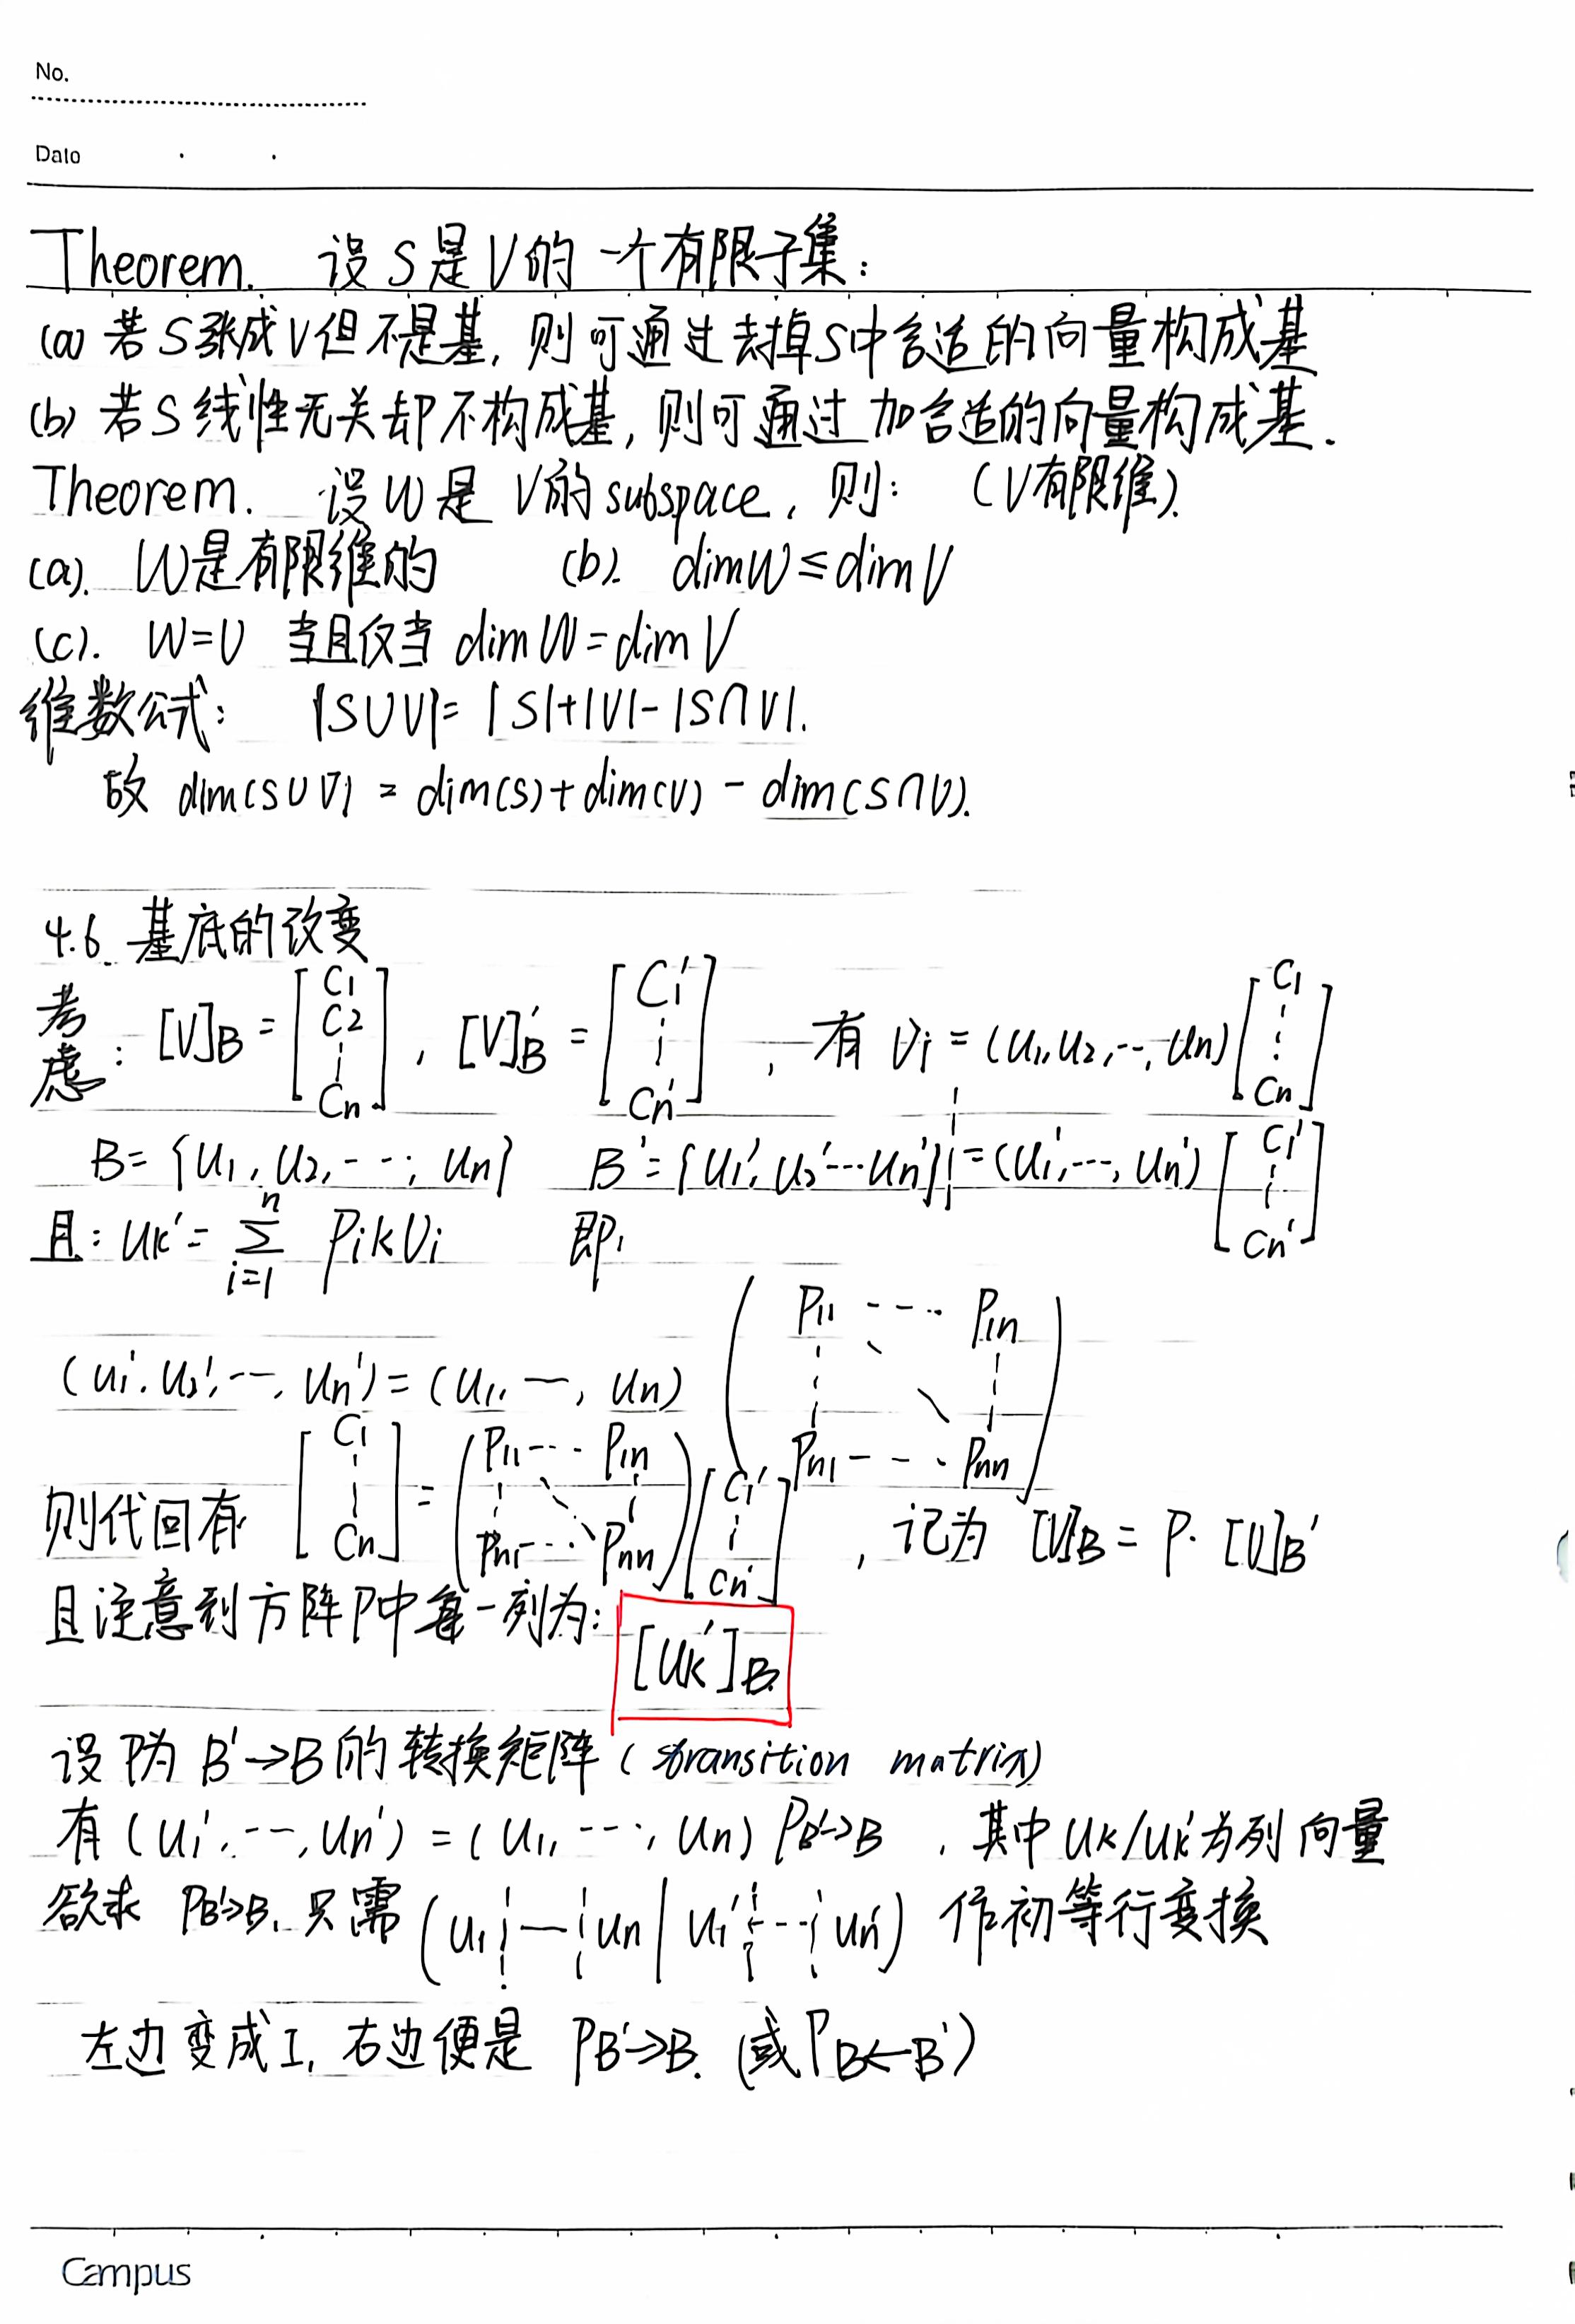 No.
Date
Theorem. 设 S是 V的 一个有限子集:
(a) 若S张成V但不是基, 则可通过去掉S中合适的向量构成基
(b) 若S线性无关却不构成基, 则可通过加合适的向量构成基.
Theorem. 设W是 V的subspace, 则: (V有限维).
(a). W是有限维的 (b). dimW≤dimV
(c). W=V 当且仅当 dimW=dimV
维数公式: |S∪V|=|S|+|V|-|S∩V|.
故 dim(S∪V) = dim(S)+dim(V) - dim(S∩V).
4.6 基底的改变
考虑: [V]B = [C1 C2 ⋮ Cn], [V]B' = [C1' ⋮ Cn'], 有 Vi = (u1,u2,…,un)[C1 ⋮ Cn]
B={u1,u2,…,un} B'={u1',u2'…un'} =(u1',…,un')[C1' ⋮ Cn']
且: uk' = ∑_{i=1}^{n} Pik Vi 即:
(u1',u2',…,un')=(u1,…,un) (P11 … P1n ⋮ ⋱ ⋮ Pn1 … Pnn)
则代回有 [C1 ⋮ Cn] = (P11 … P1n ⋮ ⋱ ⋮ Pn1 … Pnn)[C1' ⋮ Cn'], 记为 [V]B = P·[V]B'
且注意到方阵P中每一列为: [uk']B
设P为 B'→B的转换矩阵(transition matrix)
有(u1',…,un') = (u1,…,un) PB'→B, 其中uk/uk'为列向量
欲求 PB'→B, 只需(u1 ⋮ … ⋮ un | u1' ⋮ … ⋮ un') 作初等行变换
左边变成I, 右边便是 PB'→B. (或PB←B')
Campus